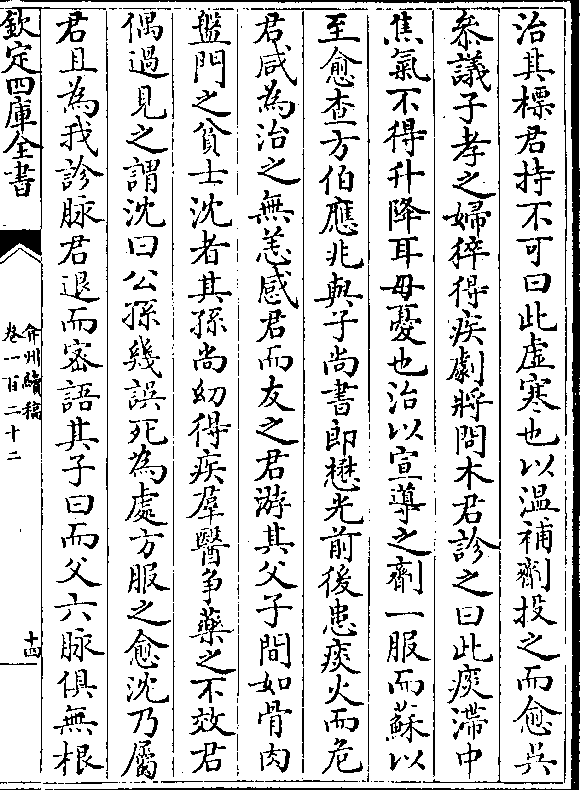 治其標君持不可曰此虚寒也以温補劑投之而愈吳
叅議子孝之婦猝得疾劇將問木君診之曰此痰滯中
焦氣不得升降耳毋憂也治以宣導之劑一服而蘇以
至愈查方伯應兆與子尚書郎懋光前後患痰火而危
君咸為治之無恙感君而友之君游其父子間如骨肉
盤門之貧士沈者其孫尚幼得疾羣醫争藥之不效君
偶過見之謂沈曰公孫幾誤死為處方服之愈沈乃屬
君且為我診脉君退而密語其子曰而父六脉俱無根
欽定四庫全書
弇州續稿
卷一百二十二
十四